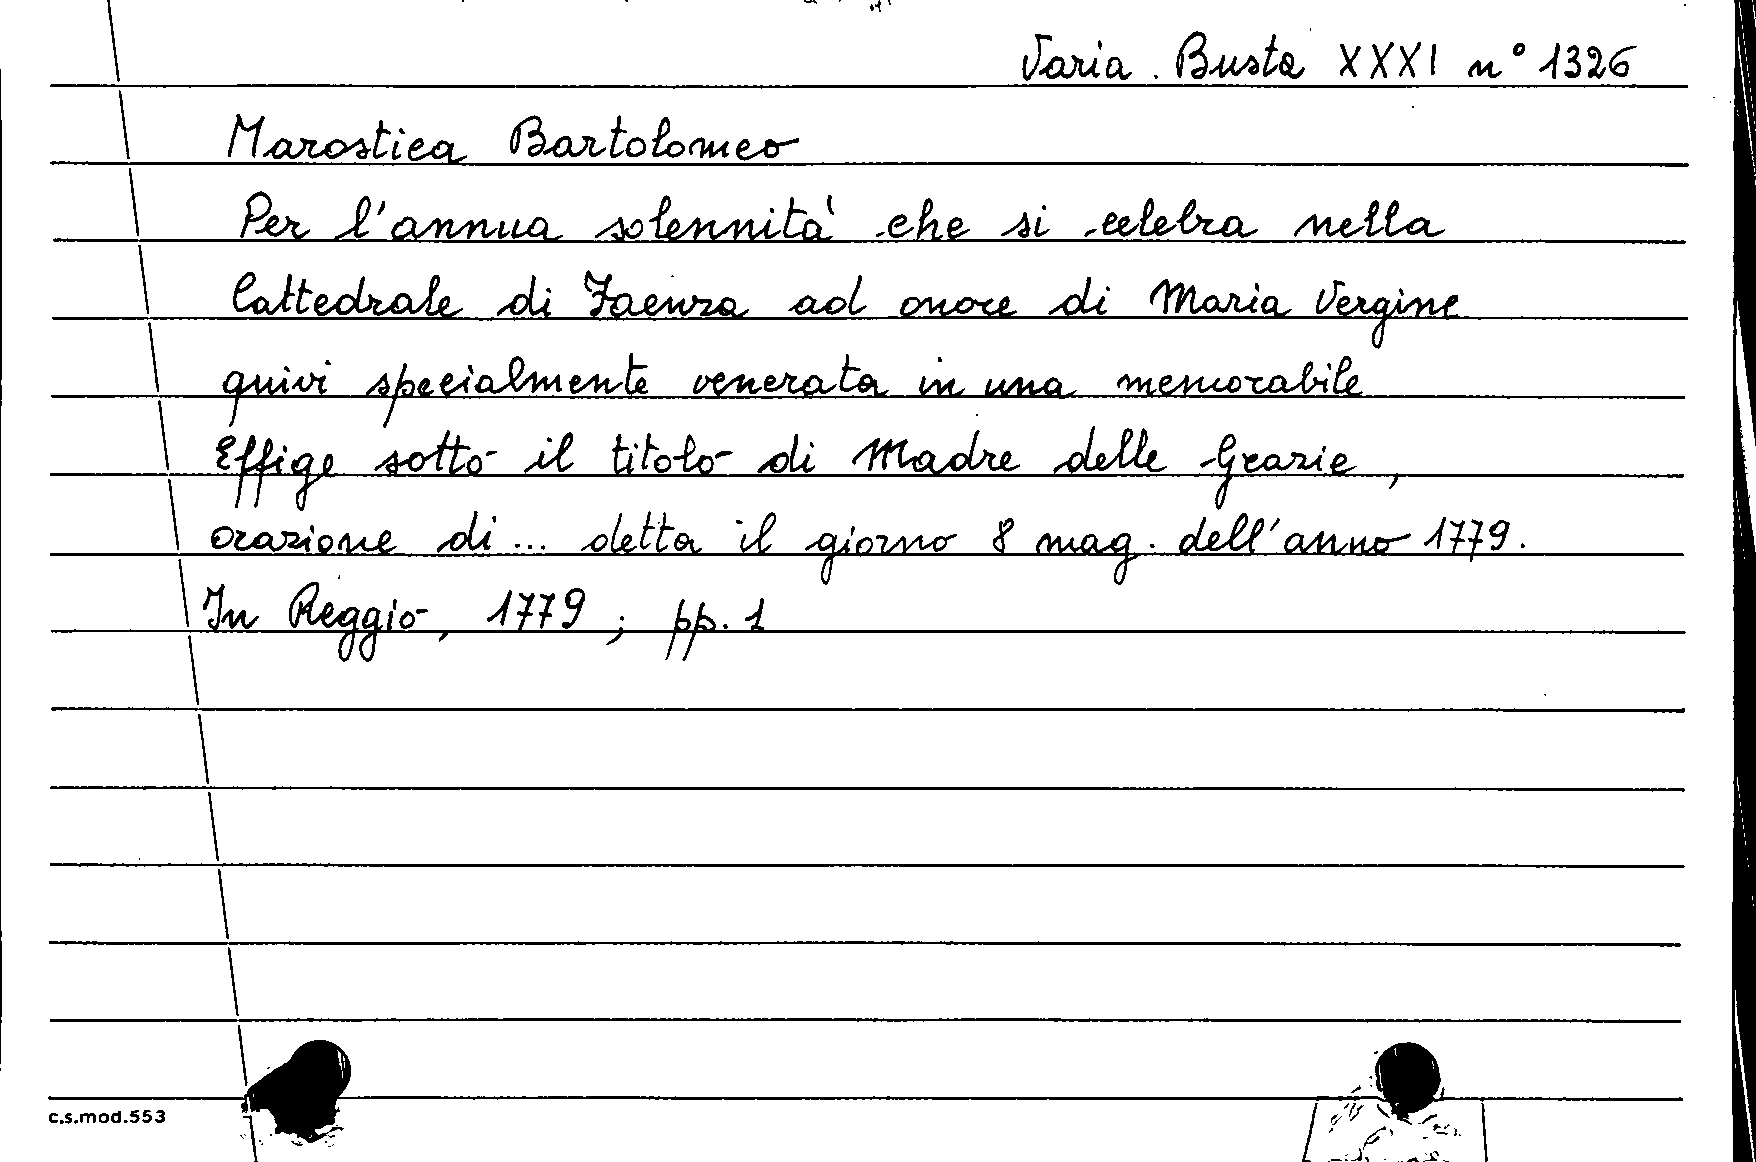 Varia. Busta XXXI n° 1326
Marostica Bartolomeo
Per l'annua solennità che si celebra nella
Cattedrale di Faenza ad onore di Maria Vergine
quivi specialmente venerata in una memorabile
Effige sotto il titolo di Madre delle Grazie,
orazione di ... detta il giorno 8 mag. dell'anno 1779.
In Reggio, 1779 ; pp. 1
c.s.mod.553